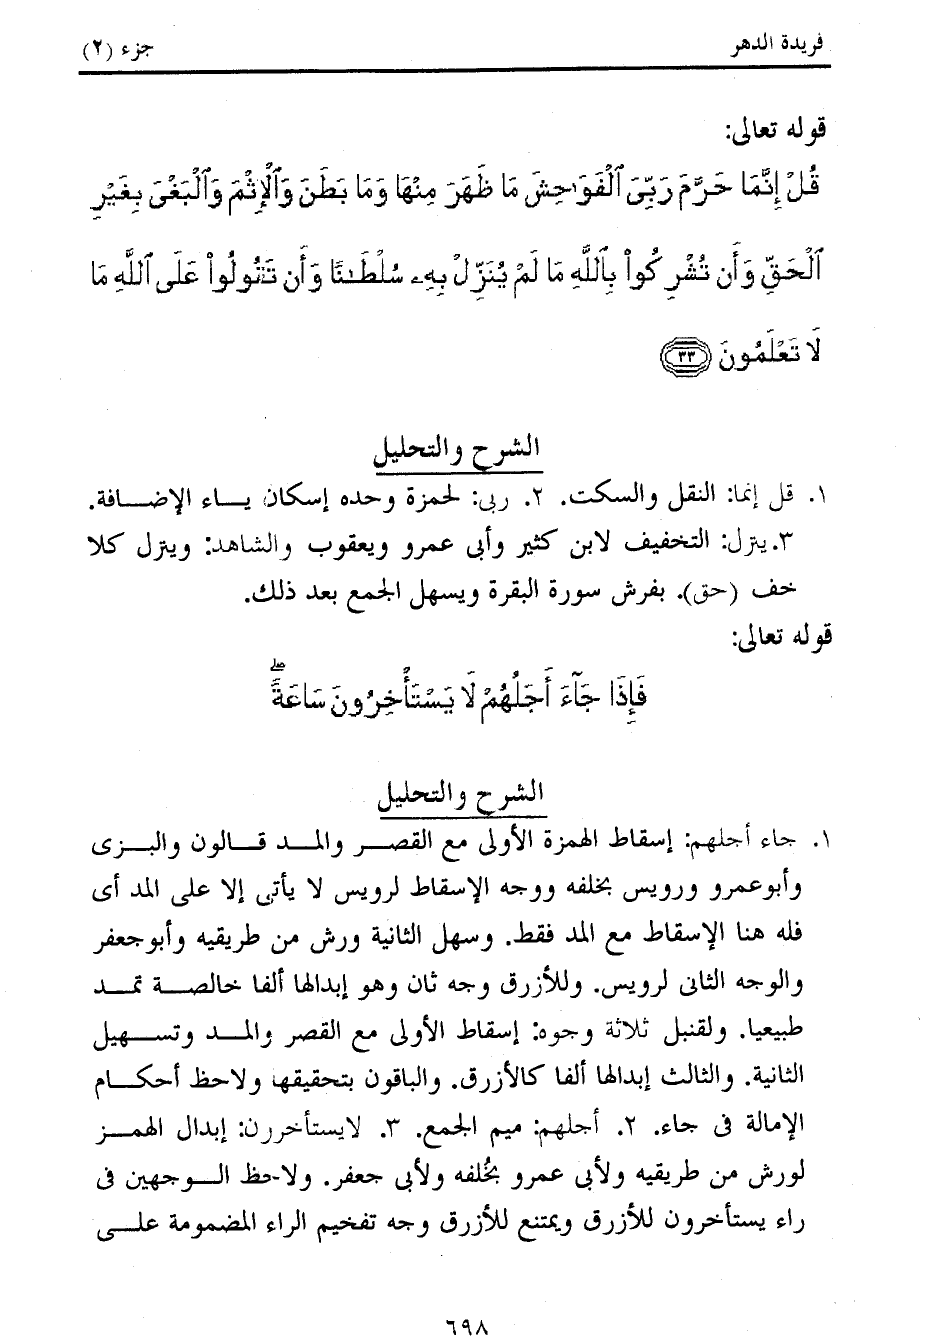 فريدة الدهر
جزء (٢)
قوله تعالى:
قُلْ إِنَّمَا حَرَّمَ رَبِّىَ ٱلْفَوَٰحِشَ مَا ظَهَرَ مِنْهَا وَمَا بَطَنَ وَٱلْإِثْمَ وَٱلْبَغْىَ بِغَيْرِ
ٱلْحَقِّ وَأَن تُشْرِكُوا۟ بِٱللَّهِ مَا لَمْ يُنَزِّلْ بِهِۦ سُلْطَٰنًا وَأَن تَقُولُوا۟ عَلَى ٱللَّهِ مَا
لَا تَعْلَمُونَ ٣٣
الشرح والتحليل
١. قل إنما: النقل والسكت. ٢. ربى: لحمزة وحده إسكان ياء الإضافة.
٣. ينزل: التخفيف لابن كثير وأبى عمرو ويعقوب والشاهد: وينزل كلا
خف (حق). بفرش سورة البقرة ويسهل الجمع بعد ذلك.
قوله تعالى:
فَإِذَا جَآءَ أَجَلُهُمْ لَا يَسْتَأْخِرُونَ سَاعَةً ۖ
الشرح والتحليل
١. جاء أجلهم: إسقاط الهمزة الأولى مع القصر والمد قالون والبزى
وأبوعمرو ورويس بخلفه ووجه الإسقاط لرويس لا يأتى إلا على المد أى
فله هنا الإسقاط مع المد فقط. وسهل الثانية ورش من طريقيه وأبوجعفر
والوجه الثانى لرويس. وللأزرق وجه ثان وهو إبدالها ألفا خالصة تمد
طبيعيا. ولقنبل ثلاثة وجوه: إسقاط الأولى مع القصر والمد وتسهيل
الثانية. والثالث إبدالها ألفا كالأزرق. والباقون بتحقيقها ولاحظ أحكام
الإمالة فى جاء. ٢. أجلهم: ميم الجمع. ٣. لايستأخررن: إبدال الهمز
لورش من طريقيه ولأبى عمرو بخُلفه ولأبى جعفر. ولاحظ الوجهين فى
راء يستأخرون للأزرق ويمتنع للأزرق وجه تفخيم الراء المضمومة على
٦٩٨